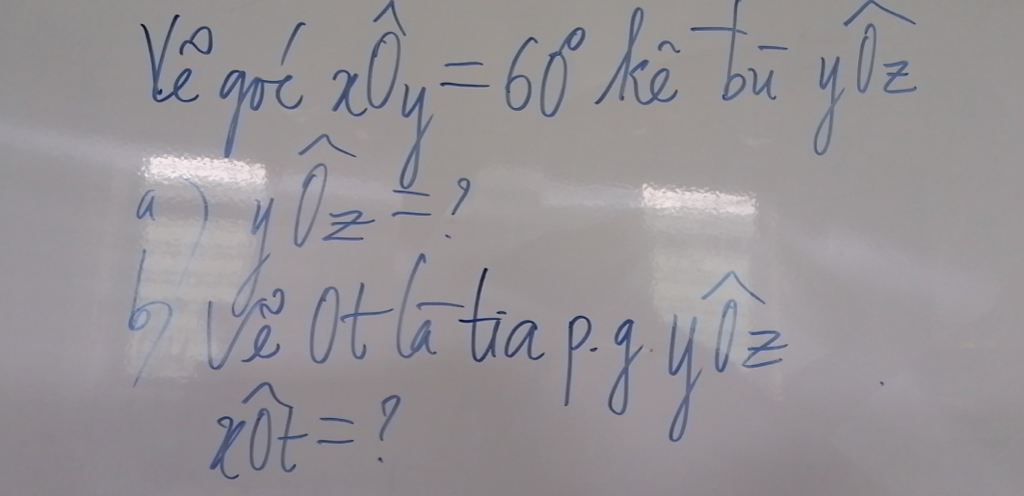 Vẽ góc xÔy = 60° kề bù yÔz
a) yÔz = ?
b) Vẽ Ot là tia p.g. yÔz
xÔt = ?